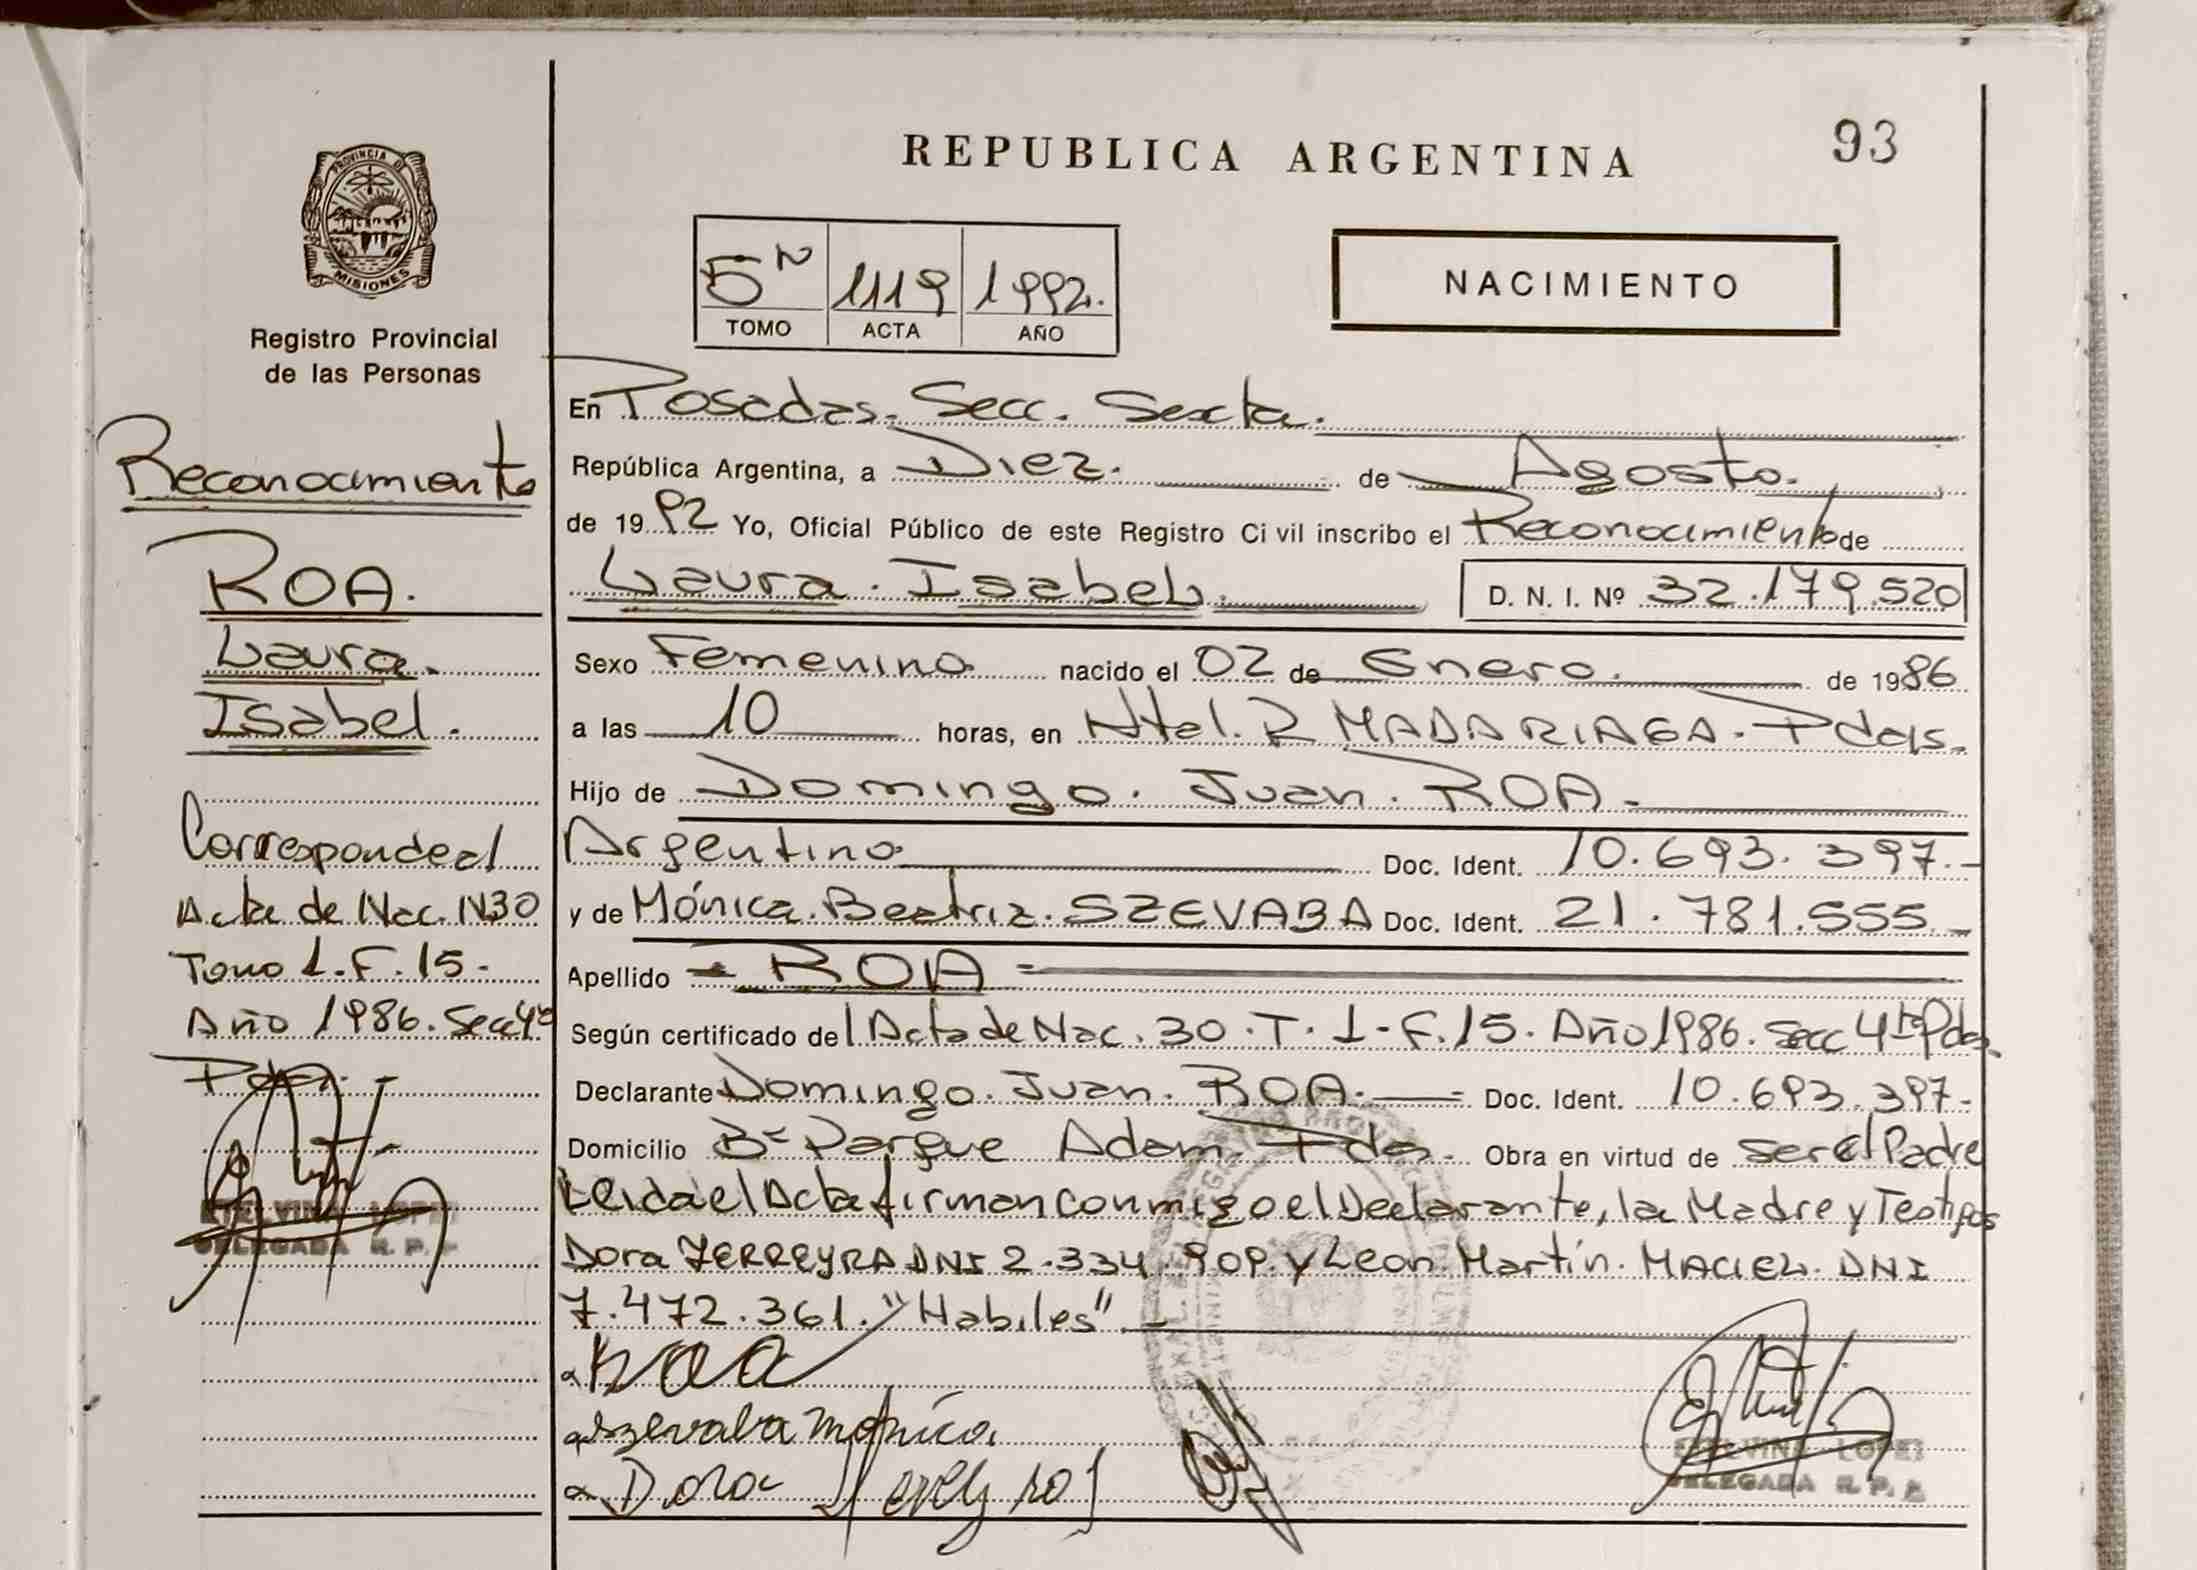 REPUBLICA ARGENTINA
93
PROVINCIA DE MISIONES
Registro Provincial
de las Personas
5º 1119 1992.
TOMO ACTA AÑO
NACIMIENTO
Reconocimiento
ROA.
Laura.
Isabel.
Corresponde al
Acta de Nac. Nº30
Tomo 1.F.15.
Año 1986. Secc 4ª
Pdas.
ETELVINA LOPEZ
DELEGADA R. P. P.
En Posadas. Secc. Sexta.
República Argentina, a Diez. de Agosto.
de 1992 Yo, Oficial Público de este Registro Civil inscribo el Reconocimiento de
Laura. Isabel. D. N. I. Nº 32.179.520
Sexo Femenino nacido el 02 de Enero. de 1986
a las 10 horas, en Htel. R MADARIAGA. Pdas.
Hijo de Domingo. Juan. ROA.
Argentino Doc. Ident. 10.693.397.-
y de Mónica. Beatriz. SZEVABA Doc. Ident. 21.781.555.-
Apellido - ROA -
Según certificado del Acta de Nac. 30.T.1-F.15. Año 1986. Secc 4ta Pdas.
Declarante Domingo. Juan. ROA. Doc. Ident. 10.693.397-
Domicilio Bº Parque Adam. Pdas. Obra en virtud de ser el Padre
Leida el Acta firman conmigo el Declarante, la Madre y Testigos
Dora FERREYRA DNI 2.334.909. y Leon. Martín. MACIEL. DNI
7.472.361. "Habiles".
Roa
Szevaba Mónica.
Dora
ETELVINA LOPEZ
DELEGADA R. P. P.